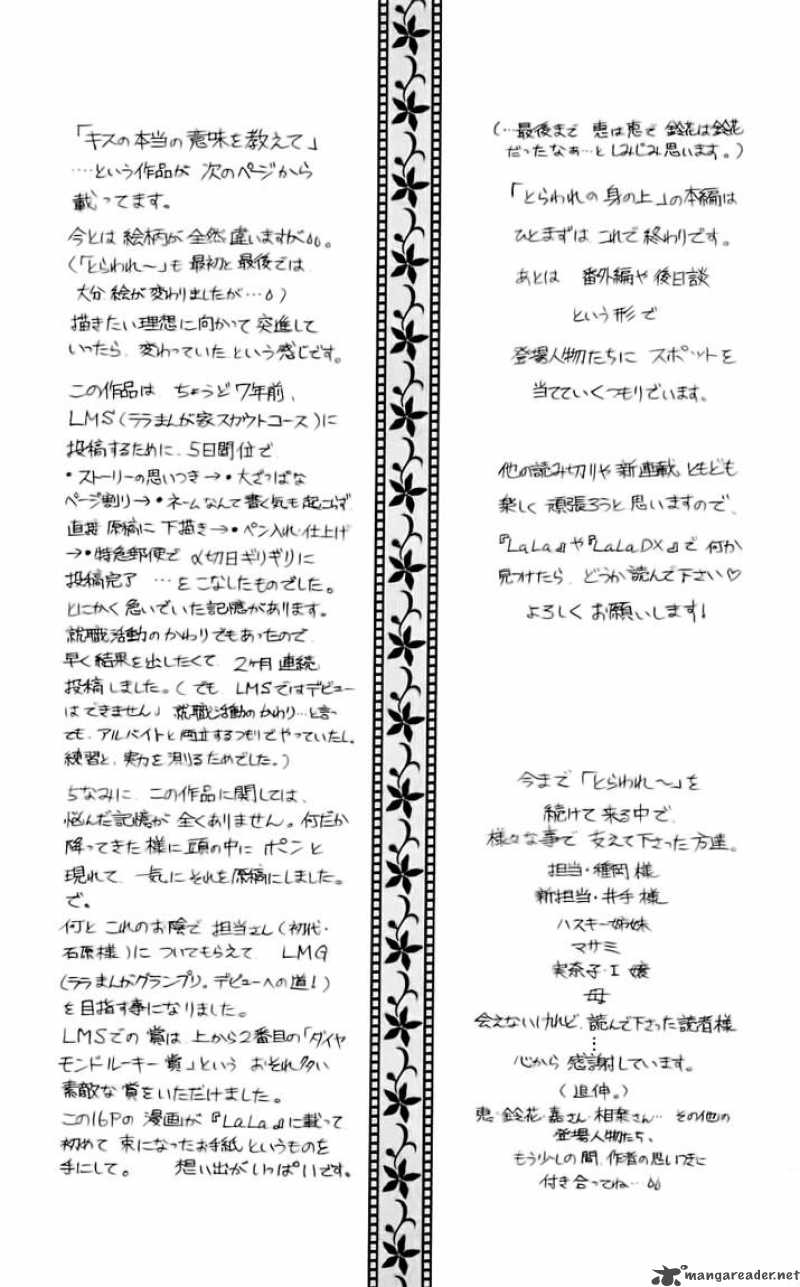 (…最後まで 恵は恵で 鈴花は鈴花
だったなぁ…としみじみ思います。)
「とらわれの身の上」の本編は
ひとまずは これで終わりです。
あとは 番外編や後日談
という形で
登場人物たちに スポットを
当てていくつもりでいます。
他の読み切りや新連載ともども
楽しく頑張ろうと思いますので、
『LaLa』や『LaLaDX』で何か
見つけたら、どうか読んで下さい♡
よろしくお願いします!
今まで「とらわれ〜」を
続けて来る中で、
様々な事で 支えて下さった方達。
担当・種岡様
新担当・井手様
ハスキー姉妹
マサミ
実奈子・I 嬢
母
会えないけれど、読んで下さった読者様
…
心から 感謝しています。
(追伸。)
恵・鈴花・嘉さん・相楽さん… その他の
登場人物たち、
もう少しの間、作者の思いつきに
付き合ってね…
「キスの本当の意味を教えて」
……という作品が 次のページから
載ってます。
今とは 絵柄が 全然違いますが。
(「とらわれ〜」も 最初と最後では
大分 絵が変わりましたが…)
描きたい理想に向かって 突進して
いったら、変わっていた という感じです。
この作品は ちょうど7年前、
LMS(ララまんが家スカウトコース)に
投稿するために、5日間位で
・ストーリーの思いつき→・大ざっぱな
ページ割り→・ネームなんて書く気も起こらず
直接 原稿に 下描き→・ペン入れ・仕上げ
→・特急郵便で 〆切日ギリギリに
投稿完了 …をこなしたものでした。
とにかく 急いでいた記憶があります。
就職活動のかわりでもあったので、
早く結果を出したくて、2ヶ月連続
投稿しました。(でも、LMSではデビュー
はできません」就職活動のかわり…と言っ
ても、アルバイトと両立するつもりでやっていたし、
練習と、実力を測るためでした。)
ちなみに、この作品に関しては、
悩んだ記憶が全くありません。何だか
降ってきた様に頭の中に ポンと
現れて、一気にそれを原稿にしました。
で。
何と これのお陰で 担当さん(初代・
石原様)に ついてもらえて、LMG
(ララまんがグランプリ。デビューへの道!)
を目指す事になりました。
LMSでの賞は、上から2番目の「ダイヤ
モンドルーキー賞」という おそれ多い
素敵な賞をいただけました。
この16Pの 漫画が『LaLa』に載って
初めて 束になったお手紙というものを
手にして。 想い出がいっぱいです。
mangareader.net